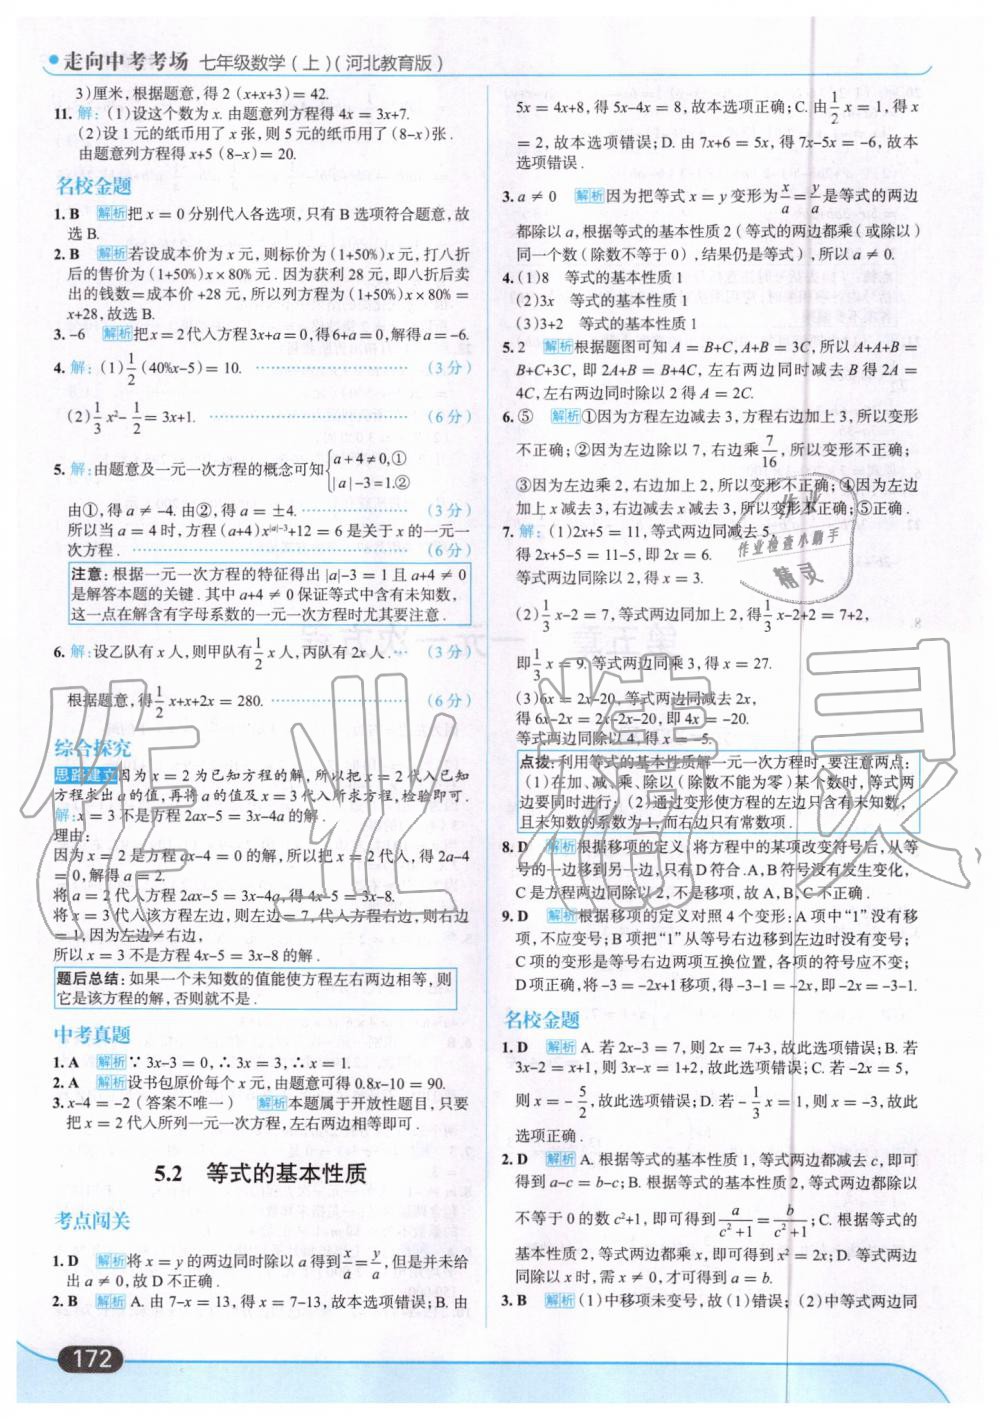 走向中考考场 七年级数学(上)(河北教育版)
3)厘米,根据题意,得 2(x+x+3)= 42.
11. 解:(1)设这个数为 x. 由题意列方程得 4x = 3x+7.
(2)设 1 元的纸币用了 x 张,则 5 元的纸币用了(8-x)张.
由题意列方程得 x+5(8-x)= 20.
名校金题
1. B 解析 把 x = 0 分别代人各选项,只有 B 选项符合题意,故
选 B.
2. B 解析 若设成本价为 x 元,则标价为(1+50%)x 元,打八折
后的售价为(1+50%)x×80% 元. 因为获利 28 元,即八折后卖
出的钱数=成本价 +28 元,所以列方程为(1+50%)x×80% =
x+28,故选 B.
3. -6 解析 把 x = 2 代人方程 3x+a = 0,得 6+a = 0,解得 a = -6.
4. 解:(1)1/2(40%x-5)= 10. (3 分)
(2)1/3x²-1/2 = 3x+1. (6 分)
5. 解:由题意及一元一次方程的概念可知{a+4≠0,① |a|-3=1.②
由①,得 a ≠ -4. 由②,得 a = ±4. (3 分)
所以当 a = 4 时,方程(a+4)x^{|a|-3}+12 = 6 是关于 x 的一元一
次方程. (6 分)
注意:根据一元一次方程的特征得出 |a|-3 = 1 且 a+4 ≠ 0
是解答本题的关键. 其中 a+4 ≠ 0 保证等式中含有未知数,
这一点在解含有字母系数的一元一次方程时尤其要注意.
6. 解:设乙队有 x 人,则甲队有1/2x 人,丙队有 2x 人. (3 分)
根据题意,得1/2x+x+2x = 280. (6 分)
综合探究
思路建立 因为 x = 2 为已知方程的解,所以把 x = 2 代入已知
方程求出 a 的值,再将 a 的值及 x = 3 代入所求方程,检验即可.
解:x = 3 不是方程 2ax-5 = 3x-4a 的解.
理由:
因为 x = 2 是方程 ax-4 = 0 的解,所以把 x = 2 代入,得 2a-4
= 0,解得 a = 2.
将 a = 2 代人方程 2ax-5 = 3x-4a,得 4x-5 = 3x-8.
将 x = 3 代入该方程左边,则左边= 7,代入方程右边,则右边
= 1,因为左边≠右边,
所以 x = 3 不是方程 4x-5 = 3x-8 的解.
题后总结:如果一个未知数的值能使方程左右两边相等,则
它是该方程的解,否则就不是.
中考真题
1. A 解析 ∵ 3x-3 = 0,∴ 3x = 3,∴ x = 1.
2. A 解析 设书包原价每个 x 元,由题意可得 0.8x-10 = 90.
3. x-4 = -2(答案不唯一) 解析 本题属于开放性题目,只要
把 x = 2 代人所列一元一次方程,左右两边相等即可.
5.2 等式的基本性质
考点闯关
1. D 解析 将 x = y 的两边同时除以 a 得到x/a = y/a,但是并未给
出 a ≠ 0,故 D 不正确.
2. B 解析 A. 由 7-x = 13,得 x = 7-13,故本选项错误;B. 由
5x = 4x+8,得 5x-4x = 8,故本选项正确;C. 由1/2x = 1,得 x
= 2,故本选项错误;D. 由 7x+6 = 5x,得 7x-5x = -6,故本
选项错误.
3. a ≠ 0 解析 因为把等式 x = y 变形为x/a = y/a是等式的两边
都除以 a,根据等式的基本性质 2(等式的两边都乘(或除以)
同一个数(除数不等于 0),结果仍是等式),所以 a ≠ 0.
4. (1)8 等式的基本性质 1
(2)3x 等式的基本性质 1
(3)3÷2 等式的基本性质 1
5. 2 解析 根据题图可知 A = B+C,A+B = 3C,所以 A+A+B =
B+C+3C,即 2A+B = B+4C,左右两边同时减去 B 得 2A =
4C,左右两边同时除以 2 得 A = 2C.
6. ⑤ 解析 ①因为方程左边减去 3,方程右边加上 3,所以变形
不正确;②因为左边除以 7,右边乘7/16,所以变形不正确;
③因为左边乘 2,右边加上 2,所以变形不正确;④因为左边
加上 x 减去 3,右边减去 x 减去 3,所以变形不正确;⑤正确.
7. 解:(1)2x+5 = 11,等式两边同减去 5,
得 2x+5-5 = 11-5,即 2x = 6.
等式两边同除以 2,得 x = 3.
(2)1/3x-2 = 7,等式两边同加上 2,得1/3x-2+2 = 7+2,
即1/3x = 9. 等式两边同乘 3,得 x = 27.
(3)6x = 2x-20,等式两边同减去 2x,
得 6x-2x = 2x-2x-20,即 4x = -20.
等式两边同除以 4,得 x = -5.
点拨:利用等式的基本性质解一元一次方程时,要注意两点:
(1)在加、减、乘、除以(除数不能为零)某个数时,等式两
边要同时进行;(2)通过变形使方程的左边只含有未知数,
且未知数的系数为 1,而右边只有常数项.
8. D 解析 根据移项的定义,将方程中的某项改变符号后,从等
号的一边移到另一边,只有 D 符合. A,B 符号没有发生变化,
C 是方程两边同除以 2,不是移项,故 A,B,C 不正确.
9. D 解析 根据移项的定义对照 4 个变形:A 项中“1”没有移
项,不应变号;B 项把“1”从等号右边移到左边时没有变号;
C 项的变形是等号右边两项互换位置,各项的符号应不变;
D 项正确,将 -3 = -2x+1 移项,得 -3-1 = -2x,即 -2x = -3-1.
名校金题
1. D 解析 A. 若 2x-3 = 7,则 2x = 7+3,故此选项错误;B. 若
3x-2 = x+1,则 3x-x = 1+2,故此选项错误;C. 若 -2x = 5,
则 x = -5/2,故此选项错误;D. 若 -1/3x = 1,则 x = -3,故此
选项正确.
2. D 解析 A. 根据等式的基本性质 1,等式两边都减去 c,即可
得到 a-c = b-c;B. 根据等式的基本性质 2,等式两边都除以
不等于 0 的数 c²+1,即可得到a/(c²+1) = b/(c²+1);C. 根据等式的
基本性质 2,等式两边都乘 x,即可得到 x² = 2x;D. 等式两边
同除以 x 时,需 x ≠ 0,才可得到 a = b.
3. B 解析 (1)中移项未变号,故(1)错误;(2)中等式两边同
172
作业
作业检查小助手
精灵
作业精灵